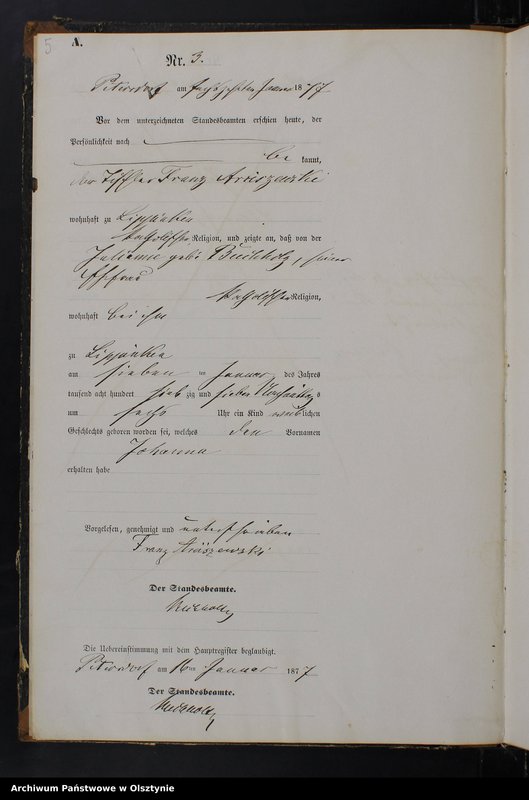 5
A.
Nr. 3.
Petersdorf am sechszehnten Januar 1877
Vor dem unterzeichneten Standesbeamten erschien heute, der
Persönlichkeit nach
be kannt,
der Tischler Franz
wohnhaft zu
katholischer Religion, und zeigte an, daß von der
Julianne geb. Buchholz, seiner
Ehefrau
katholischer Religion,
wohnhaft bei ihm
zu
am sieben ten Januar des Jahres
tausend acht hundert sieb zig und sieben Nachmittags
um sechs Uhr ein Kind weiblichen
Geschlechts geboren worden sei, welches den Vornamen
Johanna
erhalten habe
Vorgelesen, genehmigt und unterschrieben
Franz
Der Standesbeamte.
Die Uebereinstimmung mit dem Hauptregister beglaubigt.
Petersdorf am 16ten Januar 1877
Der Standesbeamte.
Archiwum Państwowe w Olsztynie